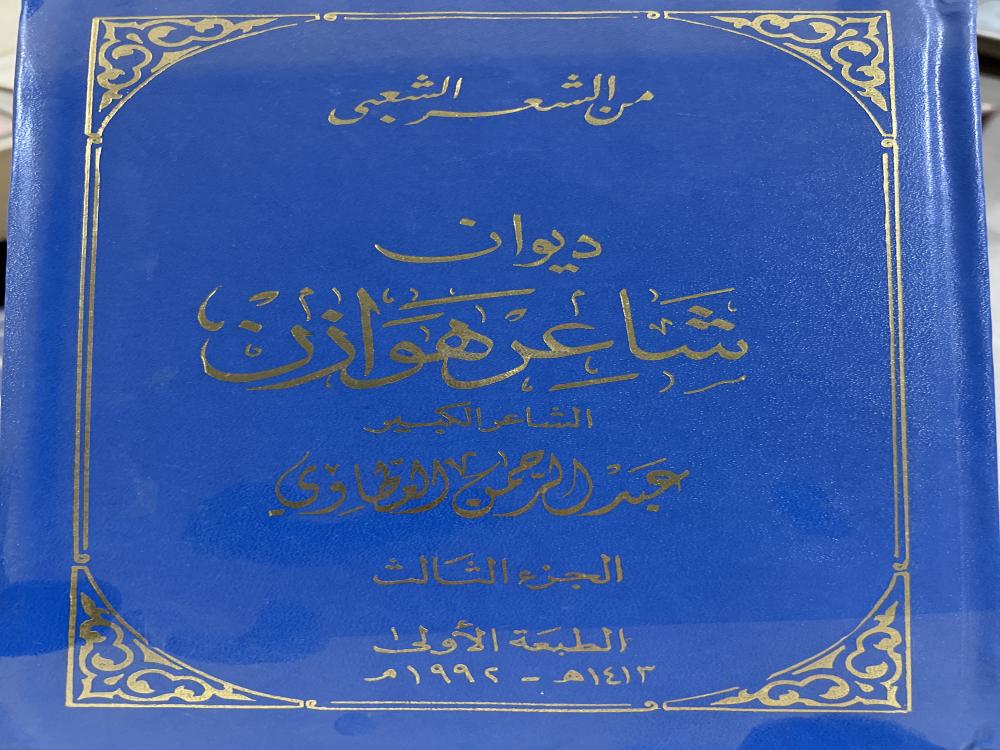 من الشعر الشعبي
ديوان
شَاعِر هَوَازن
الشاعر الكبير
عبد الرحمن العطاوي
الجزء الثالث
الطبعَة الأولى
١٤١٣هـ - ١٩٩٢م